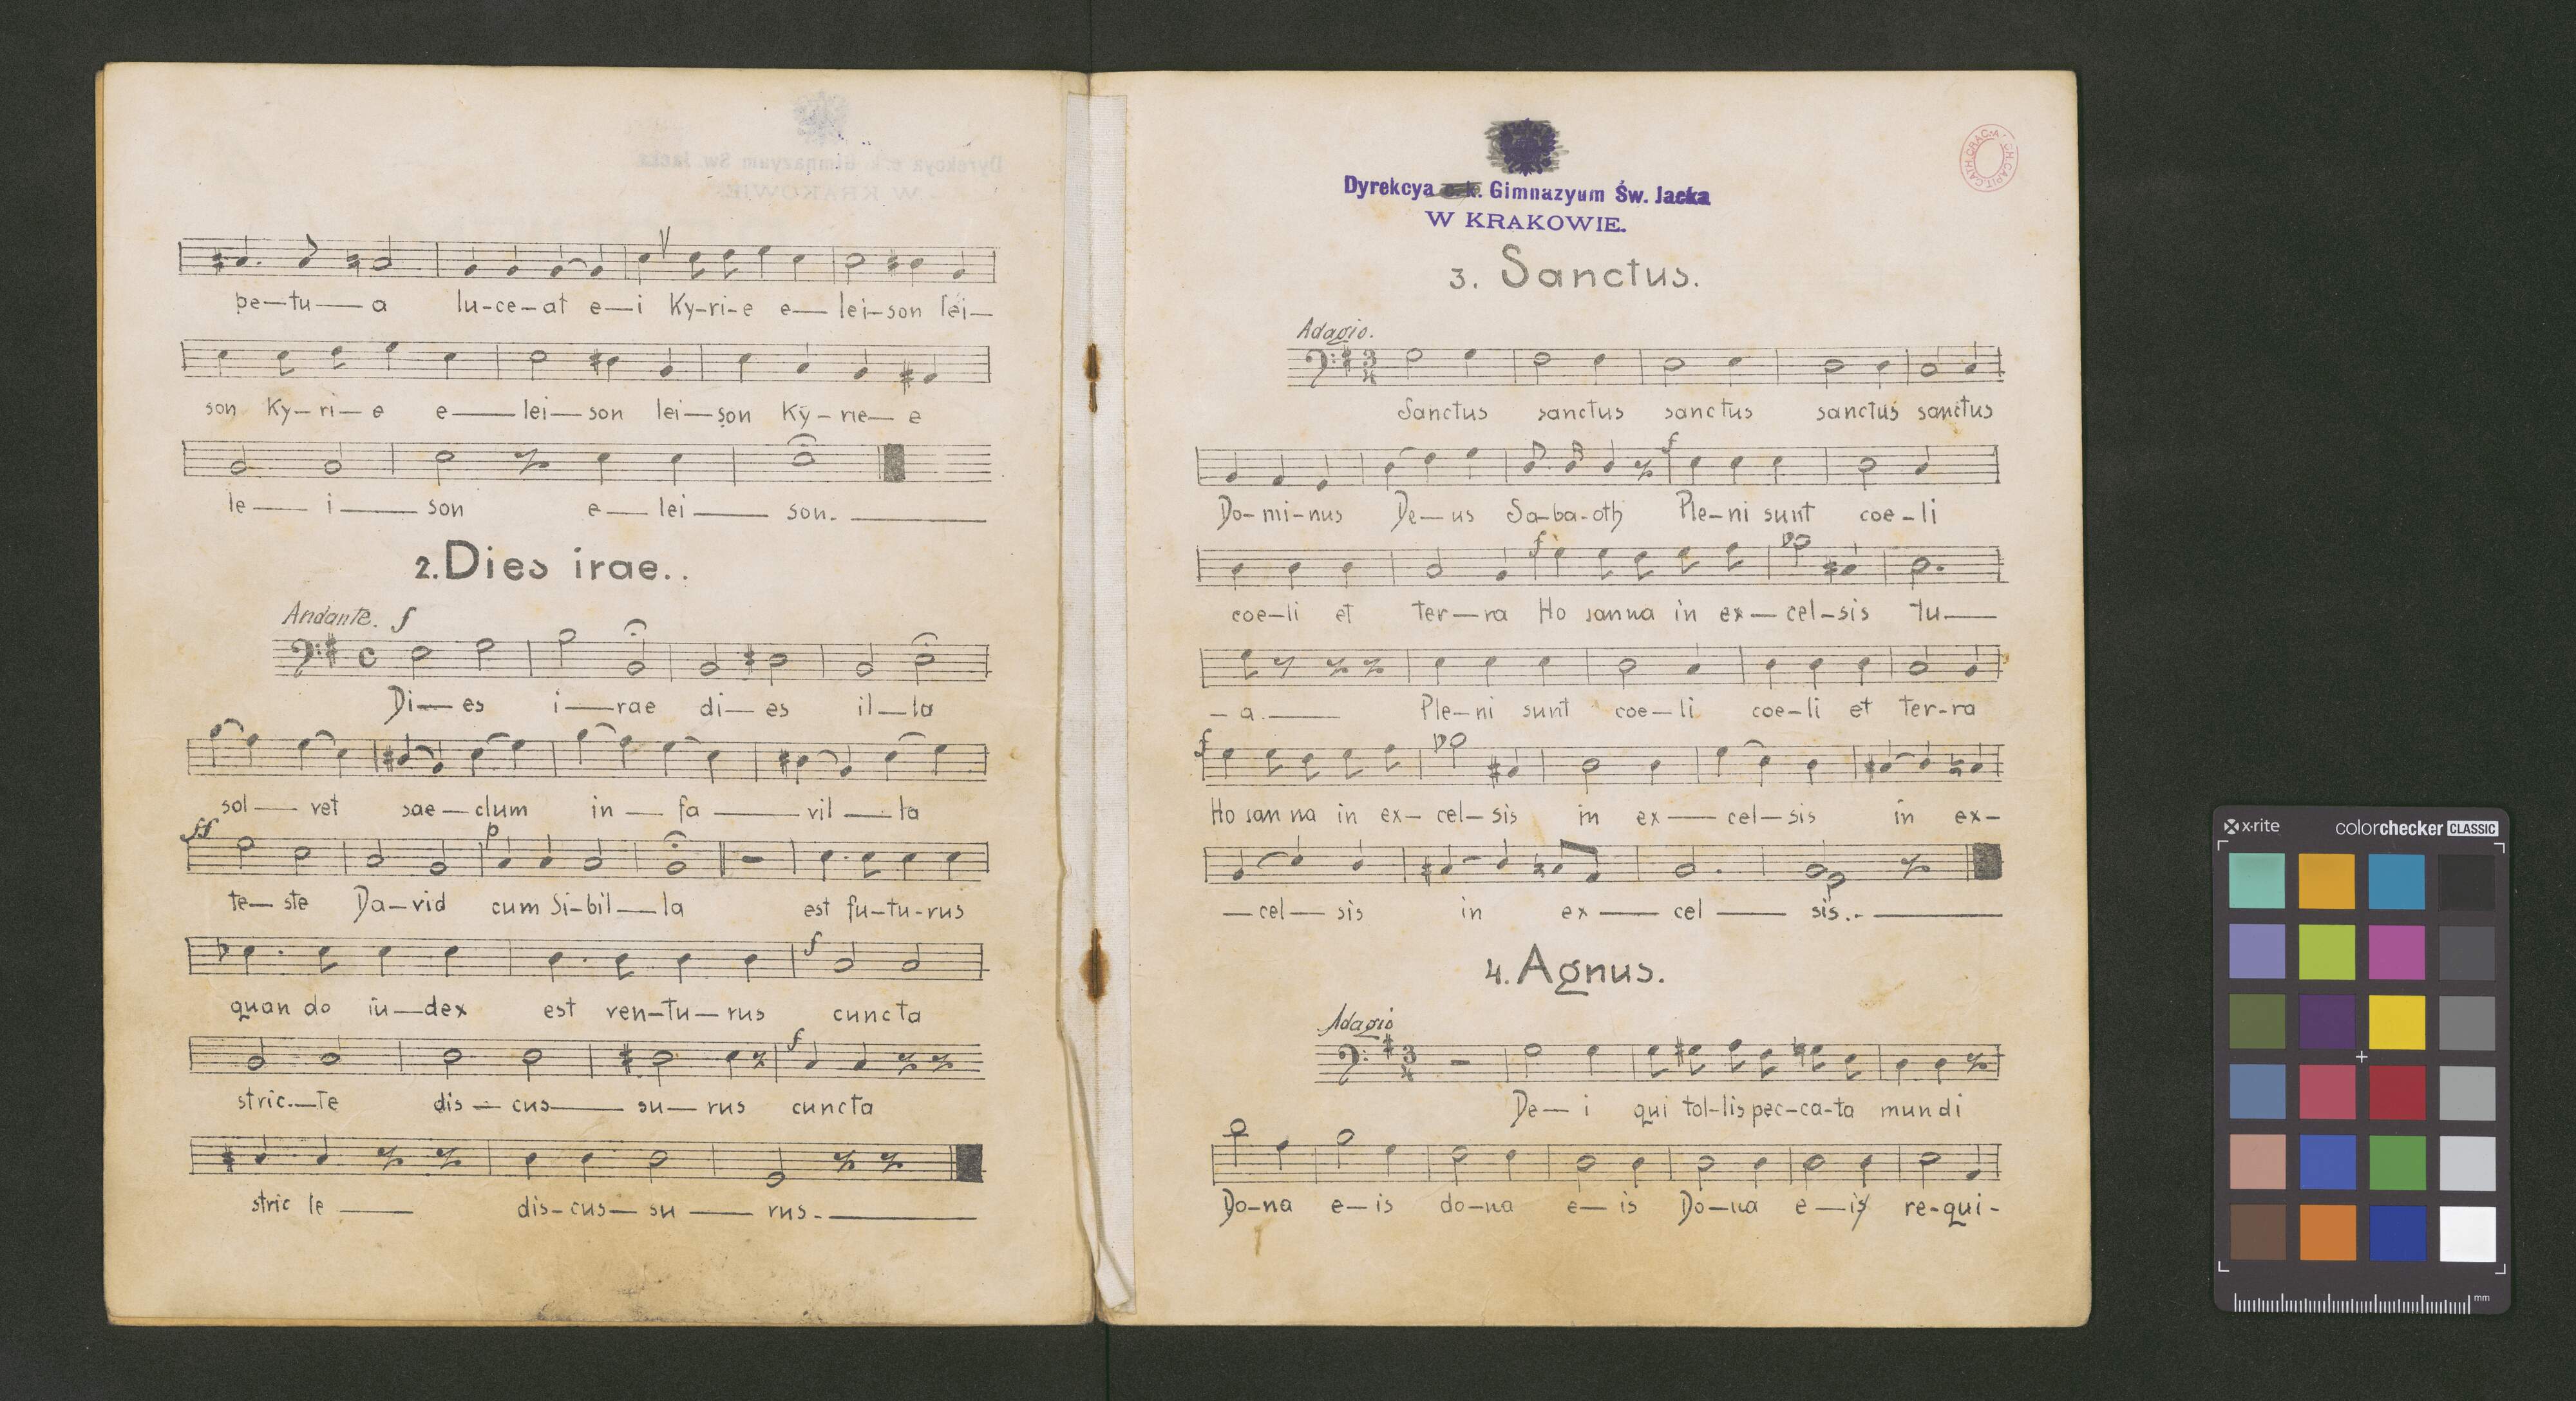 pe-tu-a lu-ce-at e-i Ky-ri-e e-lei-son lei-
son Ky-ri-e e-lei-son lei-son Ky-rie-e
le-i-son e-lei-son.
2. Dies irae..
Andante. f
Di-es i-rae di-es il-la
sol-vet sae-clum in-fa-vil-la
ff p
te-ste Da-vid cum Si-bil-la est fu-tu-rus
f
quan do iu-dex est ven-tu-rus cuncta
f
stric.-te dis-cus-su-rus cuncta
stric le dis-cus-su-rus.
Dyrekcya c. k. Gimnazyum Św. Jacka
W KRAKOWIE.
3. Sanctus.
Adagio.
3/4
Sanctus sanctus sanctus sanctus sanctus
f
Do-mi-nus De-us Sa-ba-oth Ple-ni sunt coe-li
f
coe-li et ter-ra Ho sanna in ex-cel-sis tu-
-a. Ple-ni sunt coe-li coe-li et ter-ra
f
Ho san na in ex-cel-sis in ex-cel-sis in ex-
-cel-sis in ex-cel-sis.-
4. Agnus.
Adagio
3/4
De-i qui tol-lis pec-ca-ta mun di
Do-na e-is do-na e-is Do-na e-is re-qui-
x-rite colorchecker CLASSIC
mm